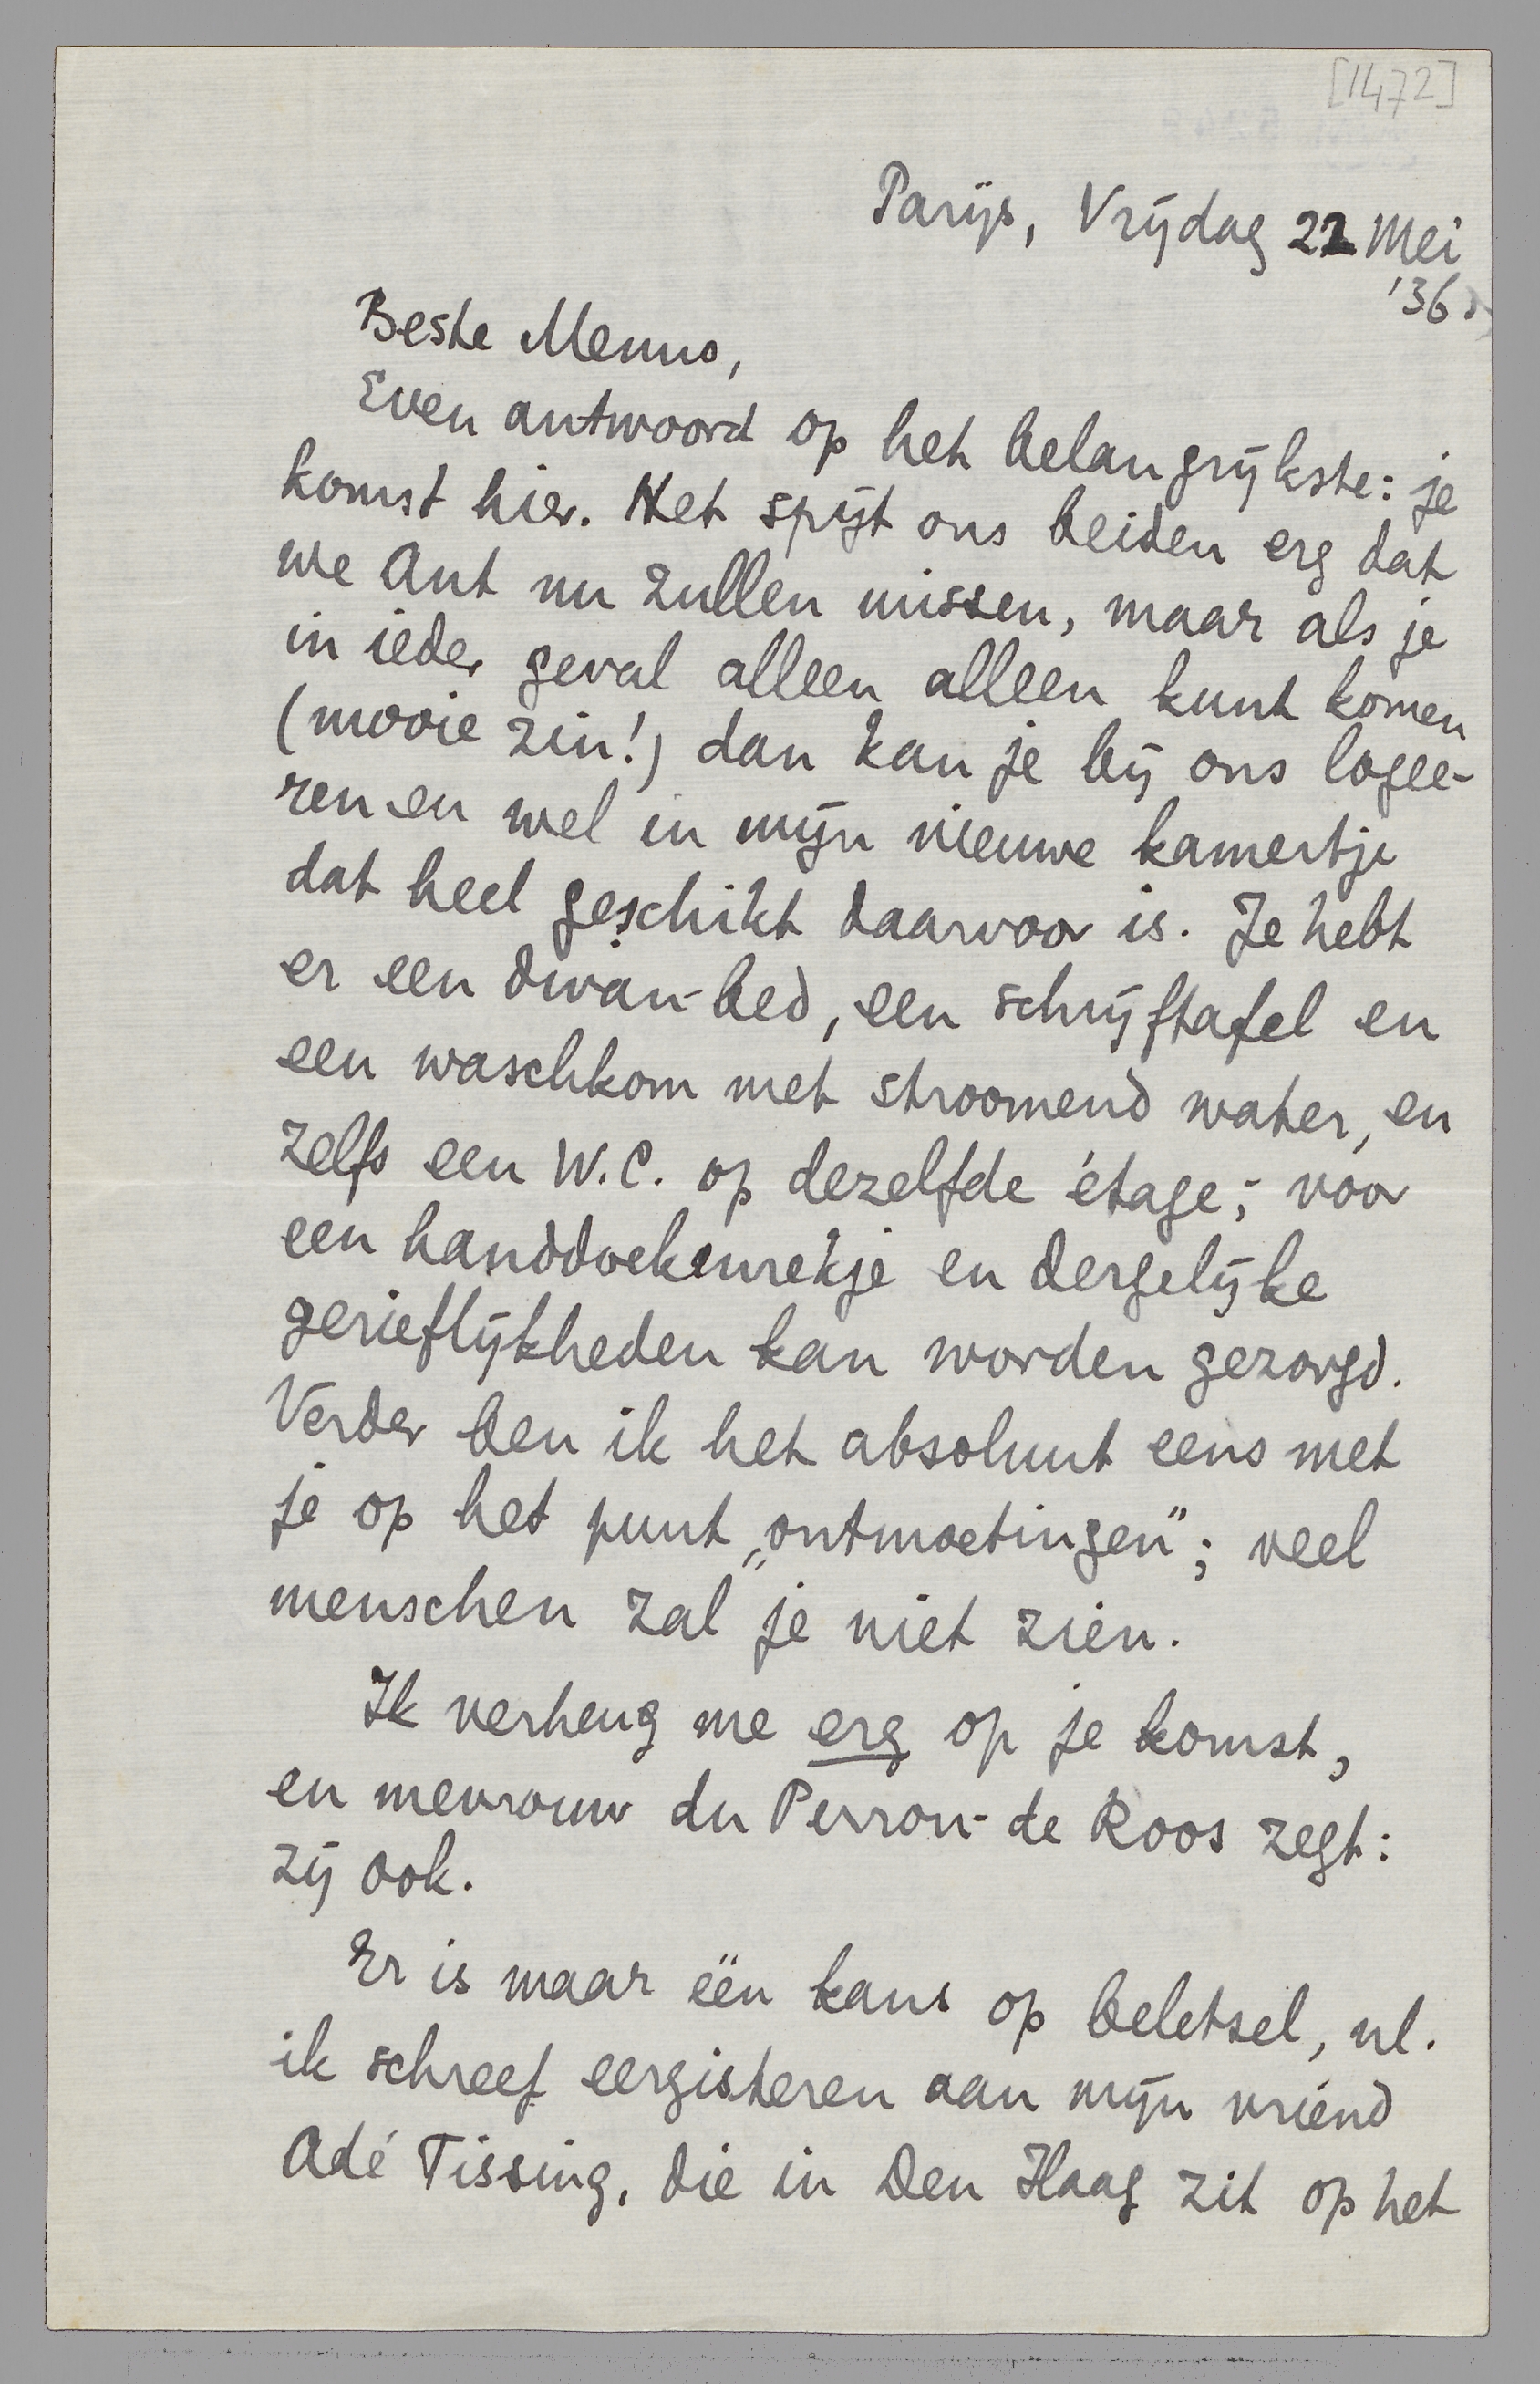 [1472]
Parijs, Vrijdag 22 Mei
'36.
Beste Menno,
Even antwoord op het belangrijkste: je
komst hier. Het spijt ons beiden erg dat
we Ant nu zullen missen, maar als je
in ieder geval alleen alleen kunt komen
(mooie zin!) dan kan je bij ons logee-
ren en wel in mijn nieuwe kamertje
dat heel geschikt daarvoor is. Je hebt
er een divan-bed, een schrijftafel en
een waschkom met stroomend water, en
zelfs een W.C. op dezelfde étage; voor
een handdoekenrekje en dergelijke
gerieflijkheden kan worden gezorgd.
Verder ben ik het absoluut eens met
je op het punt „ontmoetingen”; veel
menschen zal je niet zien.
Ik verheug me erg op je komst,
en mevrouw du Perron-de Roos zegt:
zij ook.
Er is maar één kans op beletsel, nl.
ik schreef eergisteren aan mijn vriend
Adé Tissing, die in Den Haag zit op het